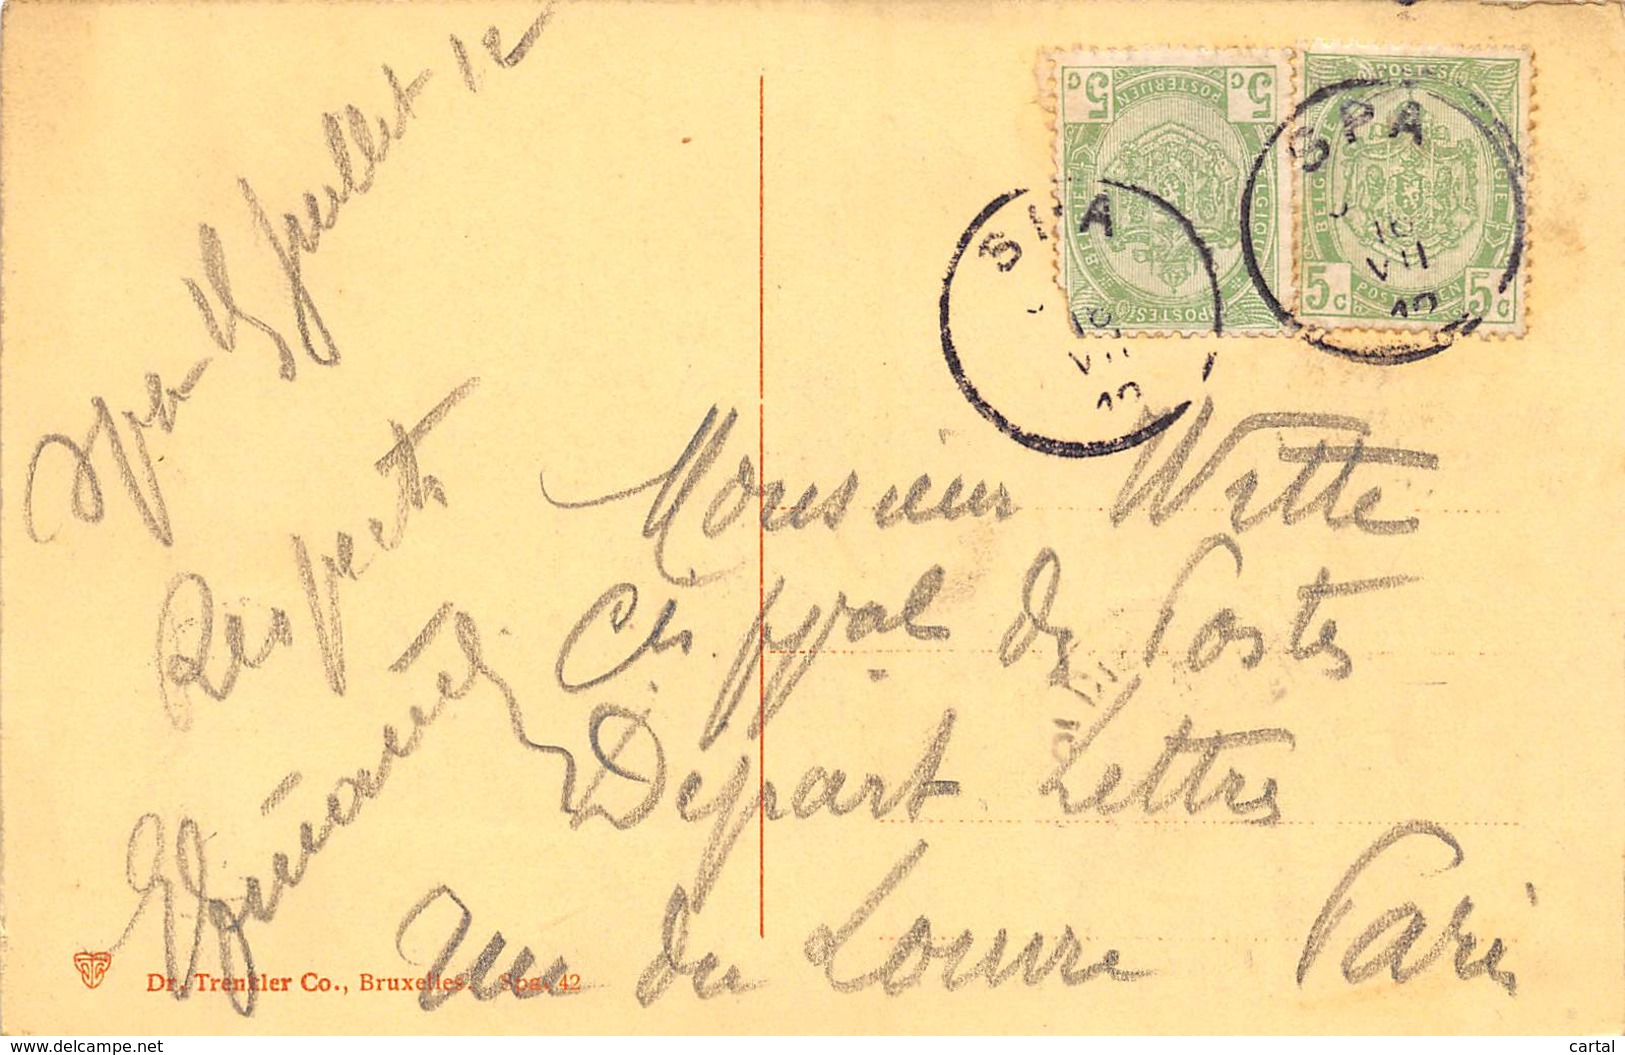 Spa - 15 Juillet 12
Respects
Monsieur Witte
Cis ppal des Postes
Départ Lettres
Rue du Louvre Paris
5c POSTERIJEN 5c
BELGIQUE
POSTES
POSTES
BELGIQUE BELGIE
5c POSTERIJEN 5c
SPA
16
VII
12
SPA
16
VII
12
Dr. Trenkler Co., Bruxelles. Spa. 42
www.delcampe.net
cartal